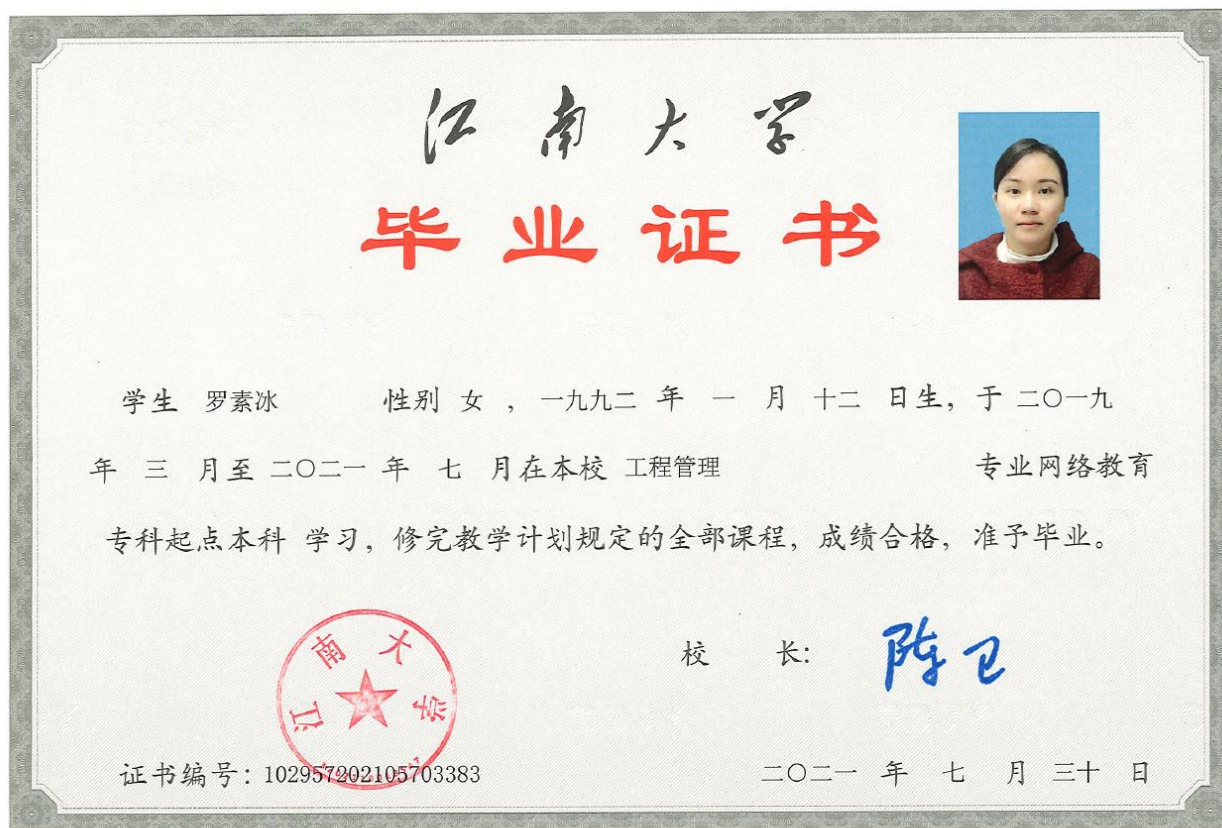 江南大学
毕业证书
学生 罗素冰 性别 女 ，一九九二 年 一 月 十二 日生，于 二〇一九
年 三 月至 二〇二一 年 七 月在本校 工程管理 专业网络教育
专科起点本科 学习，修完教学计划规定的全部课程，成绩合格，准予毕业。
江南大学
校 长：
陈卫
证书编号：102957202105703383
二〇二一 年 七 月 三十 日